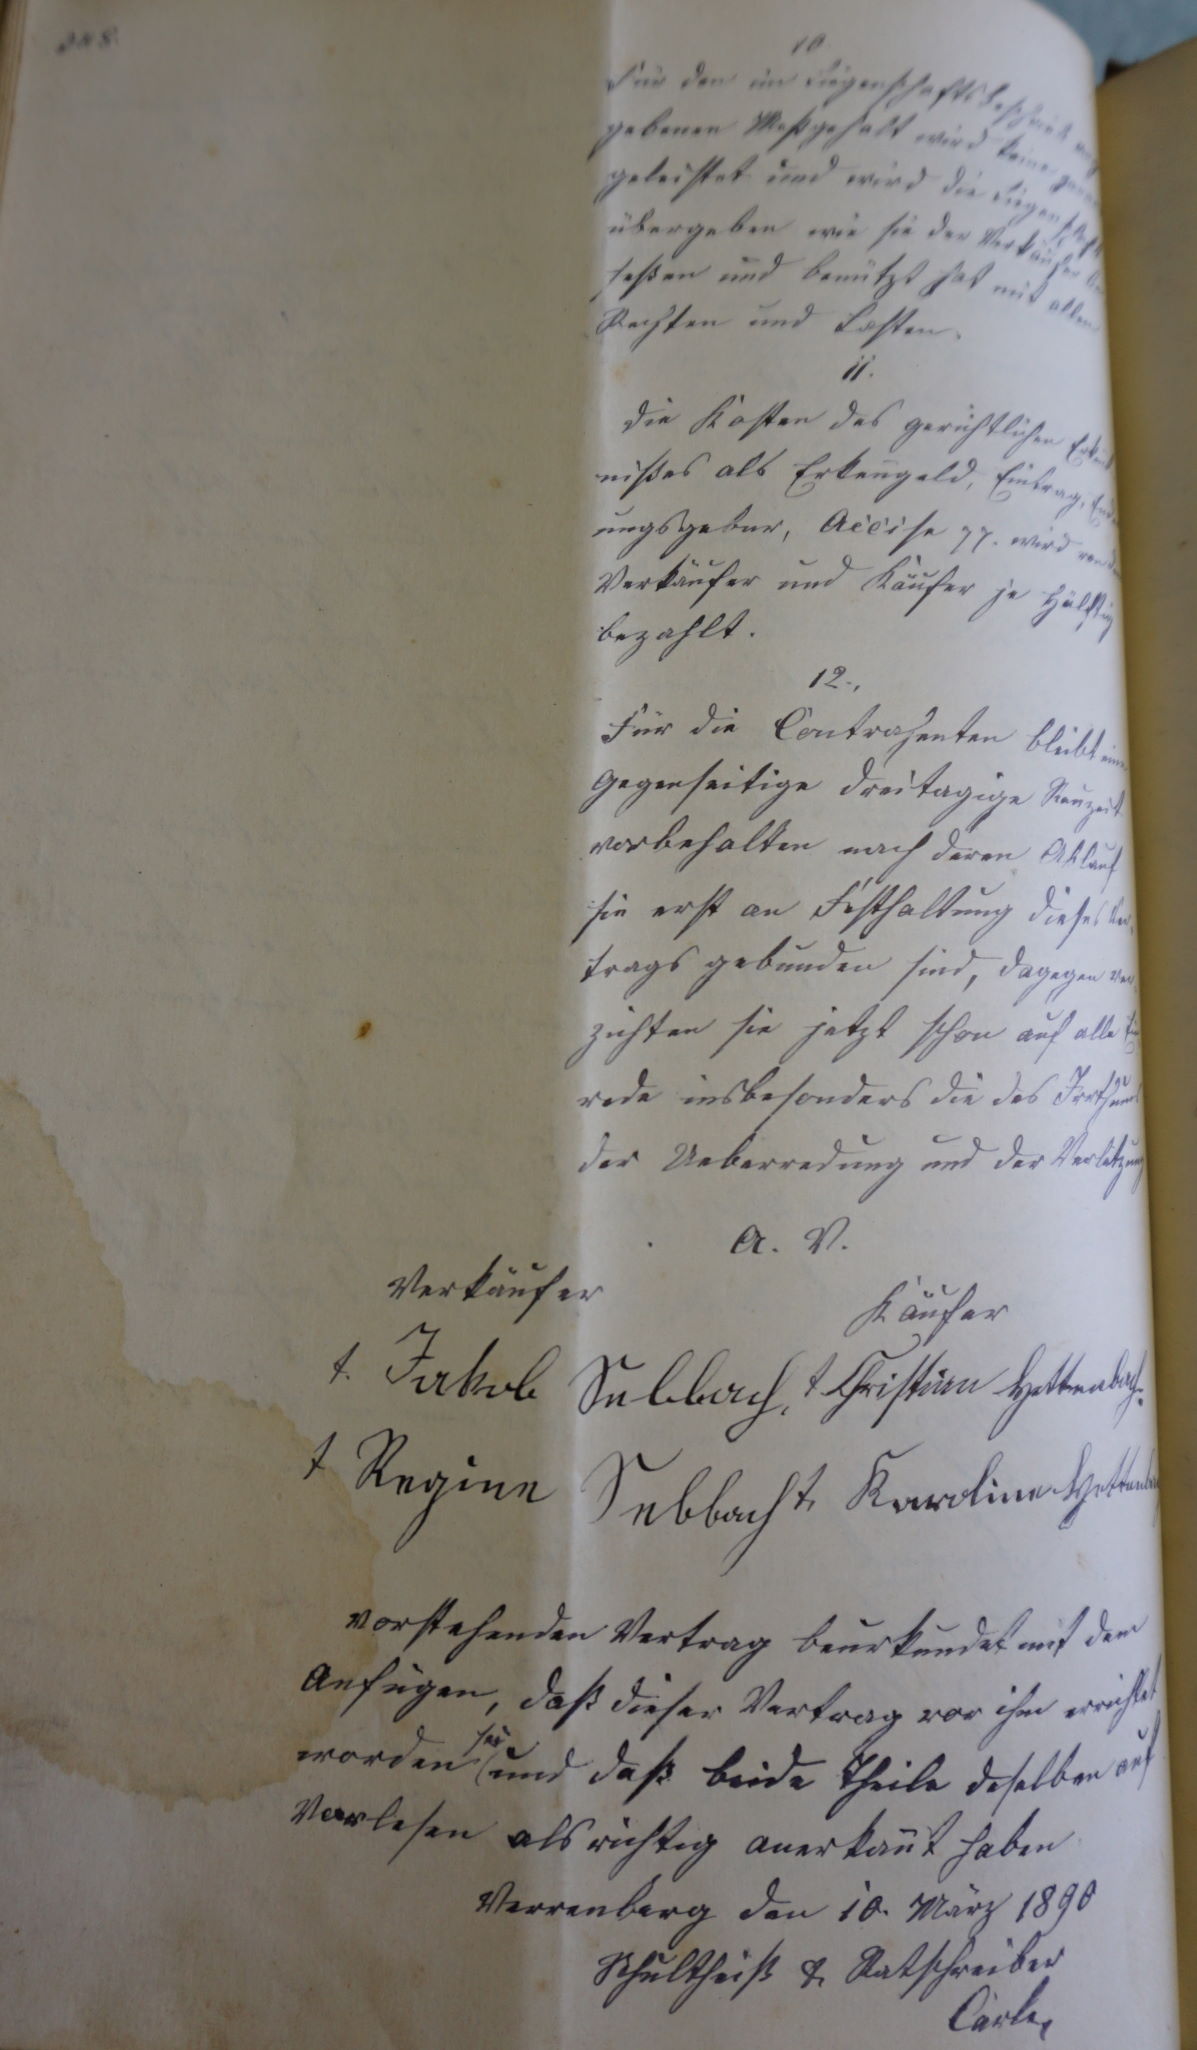 10.
Für den im Liegenschaftsbeschrieb
gebenen Meßgehalt wird keine
geleistet und wird die Liegenschaft
übergeben wie sie der Verkäufer be
seßen und benützt hat mit allen
Rechten und Lasten.
11.
Die Kosten des gerichtlichen Erkent
nißes als Erkengeld, Eintrag,
ungsgebur, Accise pp. wird von den
Verkäufer und Käufer je Hälftig
bezahlt.
12.,
Für die Contrahenten bleibt eine
Gegenseitige dreitagige Reuzeit
vorbehalten nach deren Ablauf
sie erst an Festhaltung dieses Ver-
trags gebunden sind, dagegen ver-
zichten sie jetzt schon auf alle Ein
rede insbesonders die des Irrthums
der Ueberredung und der Verletzung
A. V.
Verkäufer
Käufer
t. Jakob Sebbach, t Christian Hettenbach.
t Regine Sebbach t. Karoline Hettenbach
Vorstehenden Vertrag beurkundet mit dem
Anfügen, daß dieser Vertrag vor ihm errichtet
worden sei und daß beide Theile deselben auf
Vorlesen als richtig anerkañt haben
Verrenberg den 10. März 1890
Schultheiß & Ratschreiber
Carle,